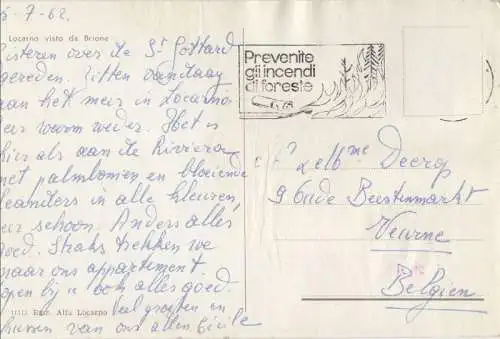 5-7-62
Locarno vista da Brione
isteren over de St Gottard
gereden. Zitten vandaag
aan het meer in Locarno
eer warm weder. Het is
hier als aan de Riviera
met palmbomen en bloeiende
leanders in alle kleuren,
eer schoon. Anders alles
goed. Straks trekken we
naar ons appartement.
open bij u ook alles goed.
Veel groeten en
kussen van ons allen Cécile
Ediz. Alfa Locarno
Prevenite
gli incendi
di foreste
Deerop
9 Oude Beestenmarkt
Veurne
Belgien